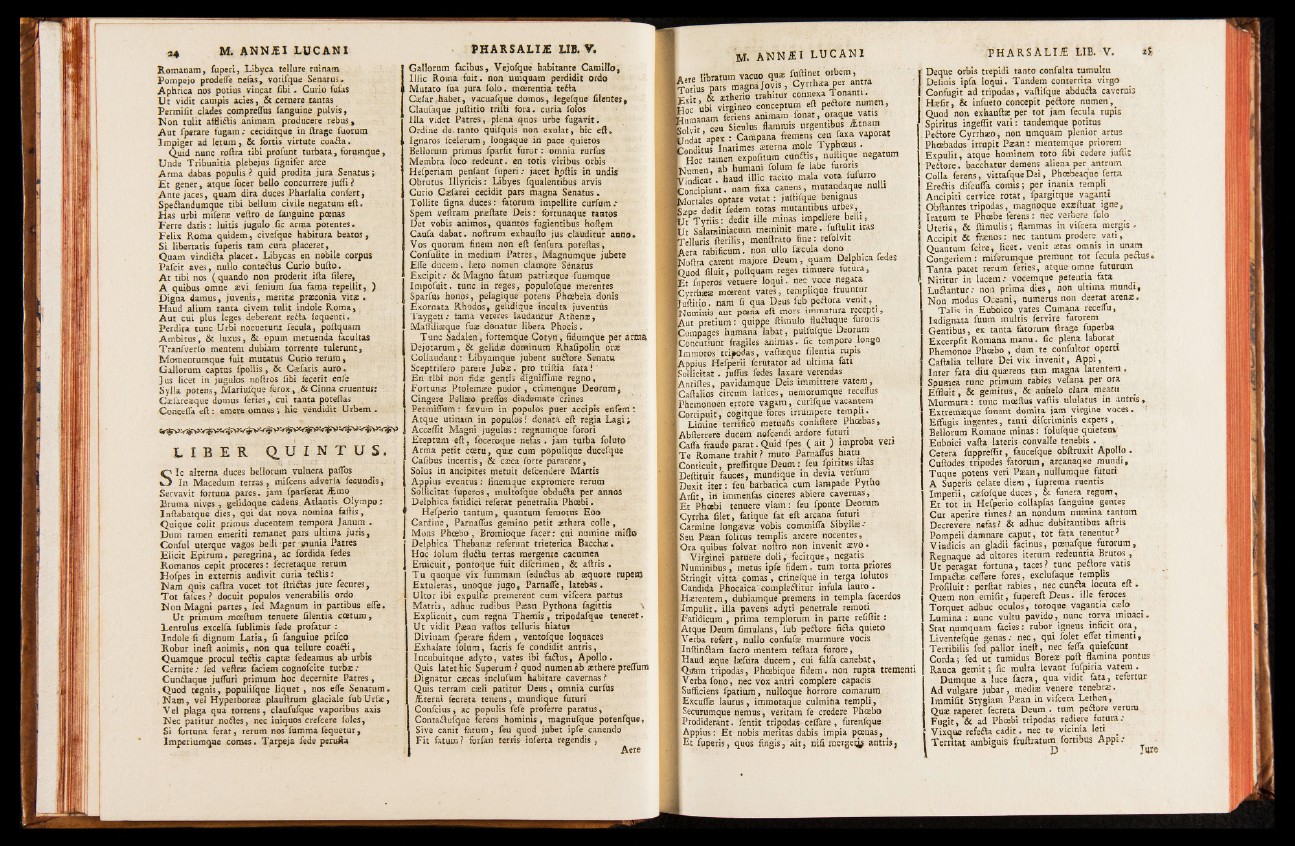 24 M. ANNÆI LUCANI
Romanam, superi, Libyca tellure ruinam
Pompejo prodesse nefas, votisque Senatus.
Aphrica nos potius vincat sibi. Curio fusas
Ut vidit campis acies, & cernere tantas
Permisit clades compressus sanguine pulvis,
Non tulit afflictis animam producere rebus,
Aut sperare fugam: ceciditque in strage suorum
Impiger ad letum, & fortis virtute coacta.
Quid nunc rostra tibi prosunt turbata, forumque,
Unde Tribunitia plebejus signifer arce
Arma dabas populis? quid prodita jura Senatus;
Et gener, atque socer bello concurrere jussi?
Ante jaces, quam dira duces Pharsalia confert,
Spectandumque tibi bellum civile negatum est.
Has urbi miseræ vestro de sanguine pœnas
Ferre datis: luitis jugulo sic arma potentes.
Felix Roma quidem, civesque habitura beatos,
Si libertatis superis tam cura placeret,
Quam vindicta placet. Libycas en nobile corpus
Pascit aves, nullo contectus Curio busto.
At tibi nos (quando non proderit ista silere,
A quibus omne ævi senium sua fama repellit, )
Digna damus, juvenis, meritæ præconia vitæ.
Haud alium tanta civem tulit indole Roma,
Aut cui plus leges deberent recta sequenti.
Perdita tunc Urbi nocuerunt secula, postquam
Ambitus, & luxus, & opum metuenda facultas
Transverso mentem dubiam torrente tulerunt,
Momentumque fuit mutatus Curio rerum,
Gallorum captus spoliis, & Cæsaris auro.
Jus licet in jugulos nostros sibi fecerit ense
Sylla potens, Mariusque ferox, & Cinna cruentus:
Cæsareæque domus series, cui tanta potestas
Concessa est: emere omnes; hic vendidit Urbem.
LIBER QUINTUS.
SIc alterna duces bellorum vulnera passos
In Macedum terras, miscens adversa secundis,
Servavit fortuna pares. jam sparserat Æmo
Bruma nives, gelidoque cadens Atlantis Olympo:
Instabatque dies, qui dat nova nomina fastis,
Quique colit primus ducentem tempora Janum.
Dum tamen emeriti remanet pars ultima juris,
Consul uterque vagos belli per munia Patres
Elicit Epirum. peregrina, ac sordida sedes
Romanos cepit proceres: secretaque rerum
Hospes in externis audivit curia tectis:
Nam quis castra vocet tot strictas jure secures,
Tot fasces? docuit populos venerabilis ordo
Non Magni partes, sed Magnum in partibus esse.
Ut primum mœstum tenuere silentia cœtum,
Lentulus excelsa sublimis sede profatur:
Indole si dignum Latia, si sanguine prisco
Robur inest animis, non qua tellure coacti,
Quamque procul tectis captæ sedeamus ab urbis
Cernite: sed vestræ faciem cognoscite turbæ:
Cunctaque jussuri primum hoc decernite Patres,
Quod regnis, populisque liquet, nos esse Senatum.
Nam, vel Hyperboreæ plaustrum glaciale sub Ursæ,
Vel plaga qua torrens, claususque vaporibus axis
Nec patitur noctes, nec iniquos crescere soles,
Si fortuna ferat, rerum nos summa sequetur,
Imperiumque comes. Tarpeja sede perusta
PHARSALIÆ LIB. V.
Gallorum facibus, Vejosque habitante Camillo,
Illic Roma fuit. non unquam perdidit ordo
Mutato sua jura solo. mœrentia tecta
Cæsar habet, vacuasque domos, legesque silentes,
Clausaque justitio tristi fora. curia solos
Illa videt Patres, plena quos urbe fugavit.
Ordine de tanto quisquis non exulat, hic est.
Ignaros scelerum, longaque in pace quietos
Bellorum primus sparsit furor: omnia rursus
Membra loco redeunt. en totis viribus orbis
Hesperiam pensant superi: jacet hostis in undis
Obrutus Illyricis: Libyes squalentibus arvis
Curio Cæsarei cecidit pars magna Senatus.
Tollite signa duces: fatorum impellite cursum:
Spem vestram præstate Deis: fortunaque tantos
Det vobis animos, quantos fugientibus hostem
Causa dabat. nostrum exhausto jus clauditur anno.
Vos quorum finem non est sensura potestas,
Consulite in medium Patres, Magnumque jubete
Esse ducem. læto nomen clamore Senatus
Excipit: & Magno fatum patriæque suumque
Imposuit. tunc in reges, populosque merentes
Sparsus honos, pelagique potens Phœbeia donis
Exornata Rhodos, gelidique inculta juventus
Taygeti: fama veteres laudantur Athenæ,
Massiliæque suæ donatur libera Phocis.
Tunc Sadalen, fortemque Cotyn, fidumque per arma
Dejotarum, & gelidæ dominum Rhasipolin oræ
Collaudant: Libyamque jubent auctore Senatu
Sceptrifero parere Jubæ. pro tristia fata!
En tibi non fidæ gentis dignissime regno,
Fortunæ Ptolemæe pudor, crimenque Deorum,
Cingere Pellæo pressos diademate crines
Permissum: sævum in populos puer accipis ensem:
Atque utinam in populos! donata est regia Lagi;
Accessit Magni jugulus: regnumque sorori
Ereptum est, soceroque nefas. jam turba soluto
Arma petit cœtu, quæ cum populique ducesque
Casibus incertis, & cæca sorte pararent,
Solus in ancipites metuit descendere Martis
Appius eventus: finemque expromere rerum
Sollicitat superos, multosque obducta per annos
Delphica fatidici reserat penetralia Phœbi.
Hesperio tantum, quantum semotus Eoo
Cardine, Parnassus gemino petit æthera colle,
Mons Phœbo, Bromioque sacer: cui numine misto
Delphica Thebanæ referunt trieterica Bacchæ.
Hoc solum fluctu terras mergente cacumen
Emicuit, pontoque fuit discrimen, & astris.
Tu quoque vix summam seductus ab æquore rupem
Extuleras, unoque jugo, Parnasse, latebas.
Ultor ibi expulsæ premerent cum viscera partus
Matris, adhuc rudibus Pæan Pythona sagittis
Explicuit, cum regna Themis, tripodasque teneret.
Ut vidit Pæan vastos telluris hiatus
Divinam sperare fidem, ventosque loquaces
Exhalare solum, sacris se condidit antris,
Incubuitque adyto, vates ibi factus, Apollo.
Quis latet hic Superum? quod numen ab æthere pressum
Dignatur cæcas inclusum habitare cavernas?
Quis terram cæli patitur Deus, omnia cursus
Æterni secreta tenens, mundique futuri
Conscius, ac populis sese proferre paratus,
Contactusque ferens hominis, magnusque potensque,
Sive canit fatum, seu quod jubet ipse canendo
Fit fatum? forsan terris inserta regendis,
Aere
M. ANNÆI LUCANI
Aere libratum vacuo quæ sustinet orbem,
Totius pars magna Jovis, Cyrrhæa per antra
Exit, & ætherio trahitur connexa Tonanti.
Hoc ubi virgineo conceptum est pectore numen,
Humanam feriens animam sonat, oraque vatis
Solvit, ceu Siculus flammis urgentibus Ætnam
Undat apex: Campana fremens ceu saxa vaporat
Conditus Inarimes æterna mole Typhœus.
Hoc tamen expositum cunctis, nullique negatum
Numen, ab humani solum se labe furoris
Vindicat. haud illic tacito mala vota susurro
Concipiunt. nam fixa canens, mutandaque nulli
Mortales optare vetat: justisque benignus
Sæpe dedit sedem totas mutantibus urbes,
Ut Tyriis: dedit ille minas impellere belli,
Ut Salaminiacum meminit mare. sustulit iras
Telluris sterilis, monstrato fine: resolvit
Aera tabificum. non ullo sæcula dono
Nostra carent majore Deum, quam Delphica sedes
Quod siluit, postquam reges timuere futura,
Et superos vetuere loqui. nec voce negata
Cyrrhææ mœrent vates, templique fruuntur
Justitio. nam si qua Deus sub pectora venit,
Numinis aut pœna est mors immatura recepti,
Aut pretium: quippe stimulo fluctuque furoris
Compages humana labat, pulsusque Deorum
Concutiunt fragiles animas. sic tempore longo
Immotos tripodas, vastæque silentia rupis
Appius Hesperii scrutator ad ultima fati
Sollicitat. jussus sedes laxare verendas
Antistes, pavidamque Deis immittere vatem,
Castalios circum latices, nemorumque recessus
Phemonoen errore vagam, curisque vacantem
Corripuit, cogitque fores irrumpere templi.
Limine terrifico metuens consistere Phœbas,
Absterrere ducem noscendi ardore futuri
Cassa fraude parat. Quid spes ( ait ) improba veri
Te Romane trahit? muto Parnassus hiatu
Conticuit, pressitque Deum: seu spiritus istas
Destituit fauces, mundique in devia versum
Duxit iter: seu barbarica cum lampade Pytho
Arsit, in immensas cineres abiere cavernas,
Et Phœbi tenuere viam: seu sponte Deorum
Cyrrha silet, fatique sat est arcana futuri
Carmine longævæ vobis commissa Sibyllæ:
Seu Pæan solitus templis arcere nocentes,
Ora quibus solvat nostro non invenit ævo.
Virginei patuere doli, fecitque, negatis
Numinibus, metus ipse fidem. tum torta priores
Stringit vitta comas, crinesque in terga solutos
Candida Phocaica complectitur infula lauro.
Hærentem, dubiamque premens in templa sacerdos
Impulit. illa pavens adyti penetrale remoti
Fatidicum, prima templorum in parte resistit:
Atque Deum simulans, sub pectore ficta quieto
Verba refert, nullo confusæ murmure vocis
Instinctam sacro mentem testata furore,
Haud æque læsura ducem, cui falsa canebat,
Quam tripodas, Phœbique fidem. non rupta trementi
Verba sono, nec vox antri complere capacis
Sufficiens spatium, nulloque horrore comarum
Excussæ laurus, immotaque culmina templi,
Securumque nemus, veritam se credere Phœbo
Prodiderant. sentit tripodas cessare, furensque
Appius: Et nobis meritas dabis impia pœnas,
Et superis, quos fingis, ait, nisi mergeris antris,
PHARSALIÆ LIB. V. 25
Deque orbis trepidi tanto consulta tumultu
Desinis ipsa loqui. Tandem conterrita virgo
Confugit ad tripodas, vastisque abducta cavernis
Hæsit, & insueto concepit pectore numen,
Quod non exhaustæ per tot jam secula rupis
Spiritus ingessit vati: tandemque potitus
Pectore Cyrrhæo, non umquam plenior artus
Phœbados irrupit Pæan: mentemque priorem
Expulit, atque hominem toto sibi cedere jussit
Pectore. bacchatur demens aliena per antrum
Colla ferens, vittasque Dei, Phœbeaque serta
Erectis discussa comis: per inania templi
Ancipiti cervice rotat, spargitque vaganti
Obstantes tripodas, magnoque exæstuat igne,
Iratum te Phœbe ferens: nec verbere solo
Uteris, & stimulis; flammas in viscera mergis.
Accipit & frænos: nec tantum prodere vati,
Quantum scire, licet. venit ætas omnis in unam
Congeriem: miserumque premunt tot secula pectus.
Tanta patet rerum series, atque omne futurum
Nititur in lucem: vocemque petentia fata
Luctantur: non prima dies, non ultima mundi,
Non modus Oceani, numerus non deerat arenæ.
Talis in Euboico vates Cumana recessu,
Indignata suum multis servire furorem
Gentibus, ex tanta fatorum strage superba
Excerpsit Romana manu. sic plena laborat
Phemonoe Phœbo, dum te consultor operti
Castalia tellure Dei vix invenit, Appi,
Inter fata diu quærens tam magna latentem.
Spumea tunc primum rabies vesana per ora
Effluit, & gemitus, & anhelo clara meatu
Murmura: tunc mœstus vastis ululatus in antris,
Extremæque sonant domita jam virgine voces.
Effugis ingentes, tanti discriminis expers,
Bellorum Romane minas: solusque quietem
Euboici vasta lateris convalle tenebis.
Cetera suppressit, faucesque obstruxit Apollo.
Custodes tripodes fatorum, arcanaque mundi,
Tuque potens veri Pæan, nullumque futuri
A Superis celate diem, suprema ruentis
Imperii, cæsosque duces, & funera regum,
Et tot in Hesperio collapsas sanguine gentes
Cur aperire times? an nondum numina tantum
Decrevere nefas? & adhuc dubitantibus astris
Pompeii damnare caput, tot fata tenentur?
Vindicis an gladii facinus, pœnasque furorum,
Regnaque ad ultores iterum redeuntia Brutos,
Ut peragat fortuna, taces? tunc pectore vatis
Impactæ cessere fores, exclusaque templis
Prosiluit: perstat rabies, nec cuncta locuta est.
Quem non emisit, superest Deus. ille feroces
Torquet adhuc oculos, totoque vagantia cælo
Lumina: nunc vultu pavido, nunc torva minaci.
Stat numquam facies: rubor igneus inficit ora,
Liventesque genas: nec, qui solet esse timenti,
Terribilis sed pallor inest, nec fessa quiescunt
Corda; sed ut tumidus Boreæ post flamina pontus
Rauca gemit; sic multa levant suspiria vatem.
Dumque a luce sacra, qua vidit fata, refertur
Ad vulgare jubar, mediæ venere tenebræ.
Immisit Stygiam Pæan in viscera Lethen,
Quæ raperet secreta Deum. tum pectore verum
Fugit, & ad Phœbi tripodas rediere futura:
Vixque refecta cadit. nec te vicinia leti
Territat ambiguis frustratum sortibus Appi:
D Jure